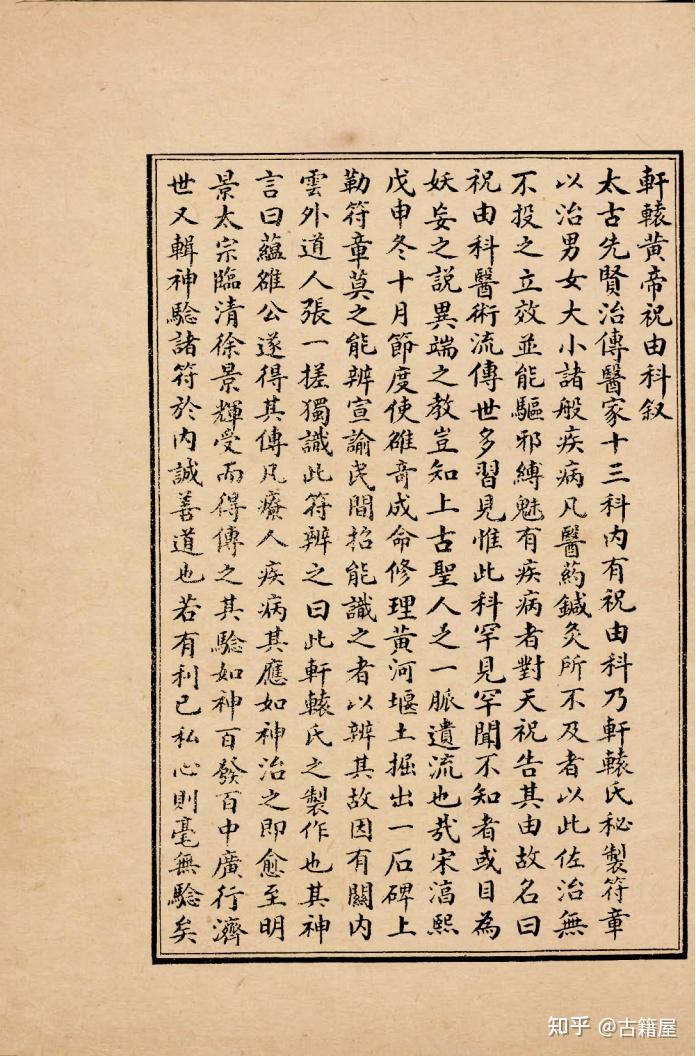 軒轅黃帝祝由科叙
太古先賢治傳醫家十三科內有祝由科乃軒轅氏秘製符章
以治男女大小諸般疾病凡醫药鍼灸所不及者以此佐治無
不投之立效並能驅邪縛魅有疾病者對天祝告其由故名曰
祝由科醫術流傳世多習見惟此科罕見罕聞不知者或目為
妖妄之説異端之教豈知上古聖人之一脈遺流也哉宋淳熙
戊申冬十月節度使雒奇成命修理黃河堰土掘出一石碑上
勒符章莫之能辨宣諭民間招能識之者以辨其故因有關內
雲外道人張一搓獨識此符辨之曰此軒轅氏之製作也其神
言曰蘊雒公遂得其傳凡療人疾病其應如神治之即愈至明
景太宗臨清徐景輝受而得傳之其驗如神百發百中廣行濟
世又輯神驗諸符於內誠善道也若有利己私心則毫無驗矣
知乎 @古籍屋